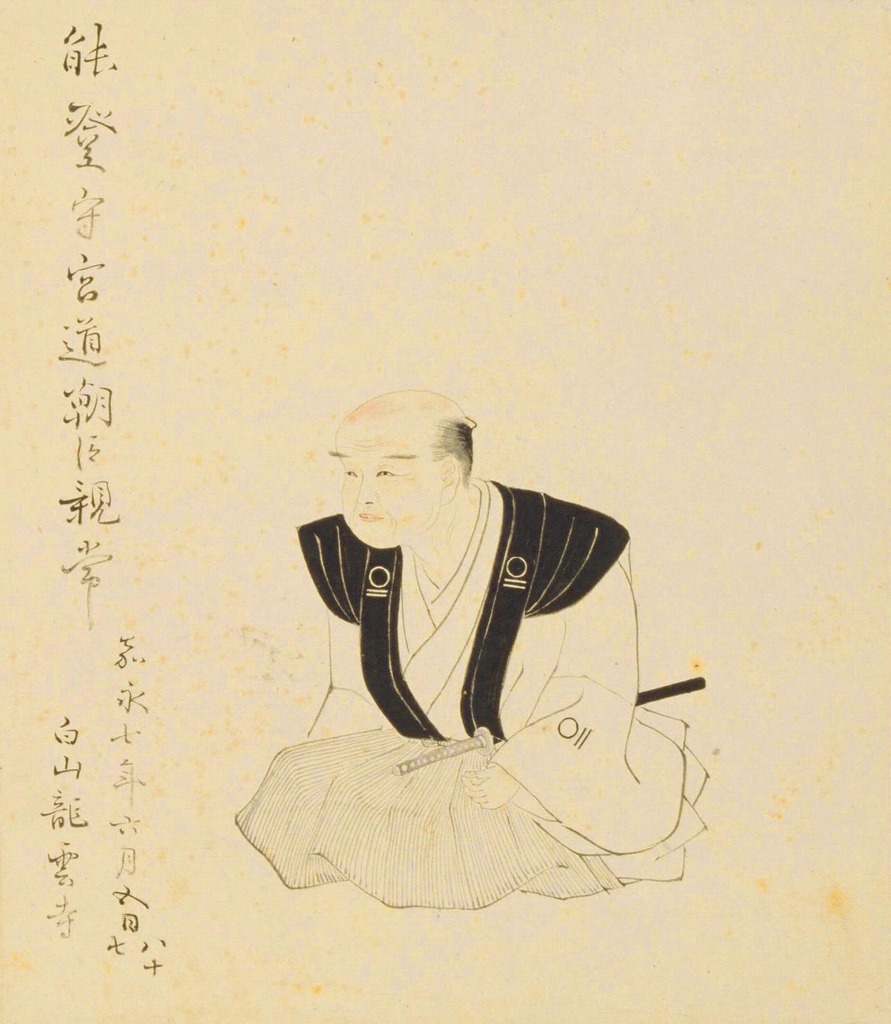 能登守宮道朝臣親常
嘉永七年六月五日
八十七
白山龍雲寺